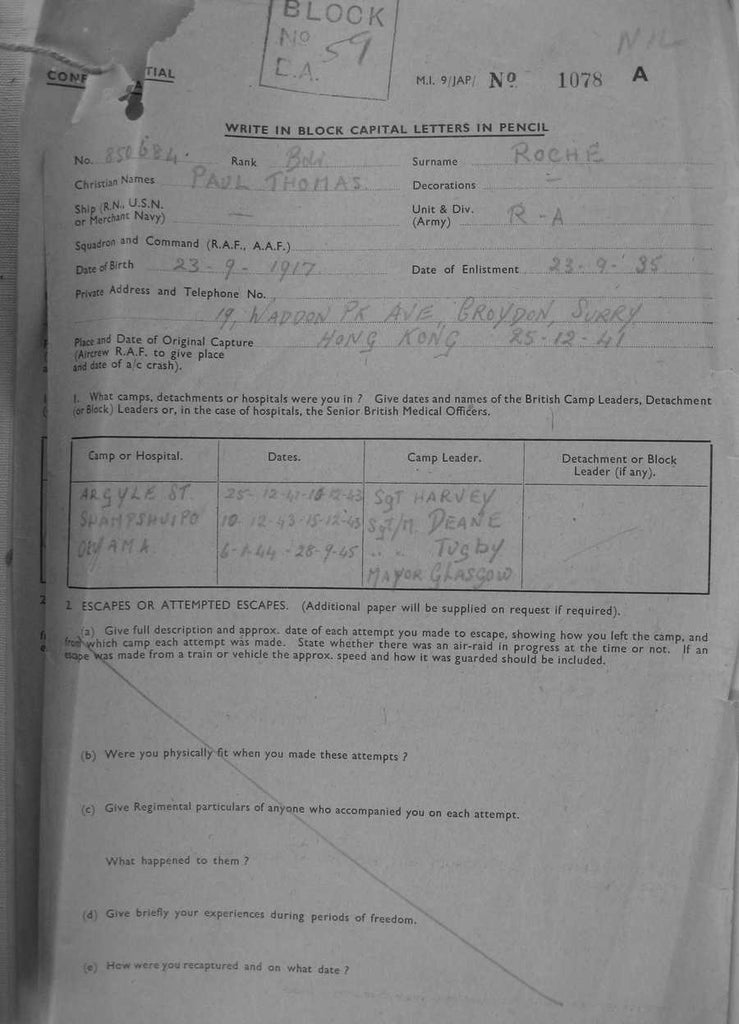 BLOCK
No 59
C.A.
NIL
M.I. 9/JAP/ No 1078 A
WRITE IN BLOCK CAPITAL LETTERS IN PENCIL
No. 850684. Rank BDR Surname ROCHE
Christian Names PAUL THOMAS. Decorations —
Ship (R.N., U.S.N. or Merchant Navy) — Unit & Div. (Army) R-A
Squadron and Command (R.A.F., A.A.F.)
Date of Birth 23-9-1917 Date of Enlistment 23-9-'35
Private Address and Telephone No.
19, WADDON PK AVE, CROYDON, SURRY
Place and Date of Original Capture HONG KONG 25-12-41
(Aircrew R.A.F. to give place
and date of a/c crash).
1. What camps, detachments or hospitals were you in ? Give dates and names of the British Camp Leaders, Detachment
(or Block) Leaders or, in the case of hospitals, the Senior British Medical Officers.
Camp or Hospital. Dates. Camp Leader. Detachment or Block Leader (if any).
ARGYLE ST. 25-12-41-10-12-43 SGT HARVEY
SHAMPSHUIPO 10-12-43-15-12-43 Sgt/M. DEANE
OEYAMA 6-1-44-28-9-45 " " TUGBY
MAYOR GLASGOW
2. ESCAPES OR ATTEMPTED ESCAPES. (Additional paper will be supplied on request if required).
(a) Give full description and approx. date of each attempt you made to escape, showing how you left the camp, and
from which camp each attempt was made. State whether there was an air-raid in progress at the time or not. If an
escape was made from a train or vehicle the approx. speed and how it was guarded should be included.
(b) Were you physically fit when you made these attempts ?
(c) Give Regimental particulars of anyone who accompanied you on each attempt.
What happened to them ?
(d) Give briefly your experiences during periods of freedom.
(e) How were you recaptured and on what date ?